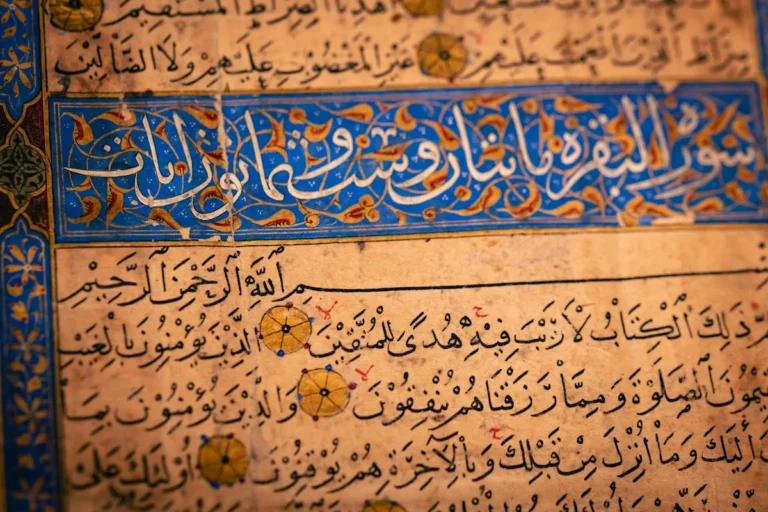 اهْدِنَا الصِّرَاطَ الْمُسْتَقِيمَ
صِرَاطَ الَّذِينَ أَنْعَمْتَ عَلَيْهِمْ غَيْرِ الْمَغْضُوبِ عَلَيْهِمْ وَلَا الضَّالِّينَ
سورة البقرة مائتان وست وثمانون ايات
بِسْمِ اللَّهِ الرَّحْمَٰنِ الرَّحِيمِ
ذَٰلِكَ الْكِتَابُ لَا رَيْبَ فِيهِ هُدًى لِلْمُتَّقِينَ الَّذِينَ يُؤْمِنُونَ بِالْغَيْبِ
الصَّلَوٰةَ وَمِمَّا رَزَقْنَاهُمْ يُنْفِقُونَ وَالَّذِينَ يُؤْمِنُونَ بِمَا
إِلَيْكَ وَمَا أُنْزِلَ مِنْ قَبْلِكَ وَبِالْآخِرَةِ هُمْ يُوقِنُونَ أُولَٰئِكَ عَلَىٰ